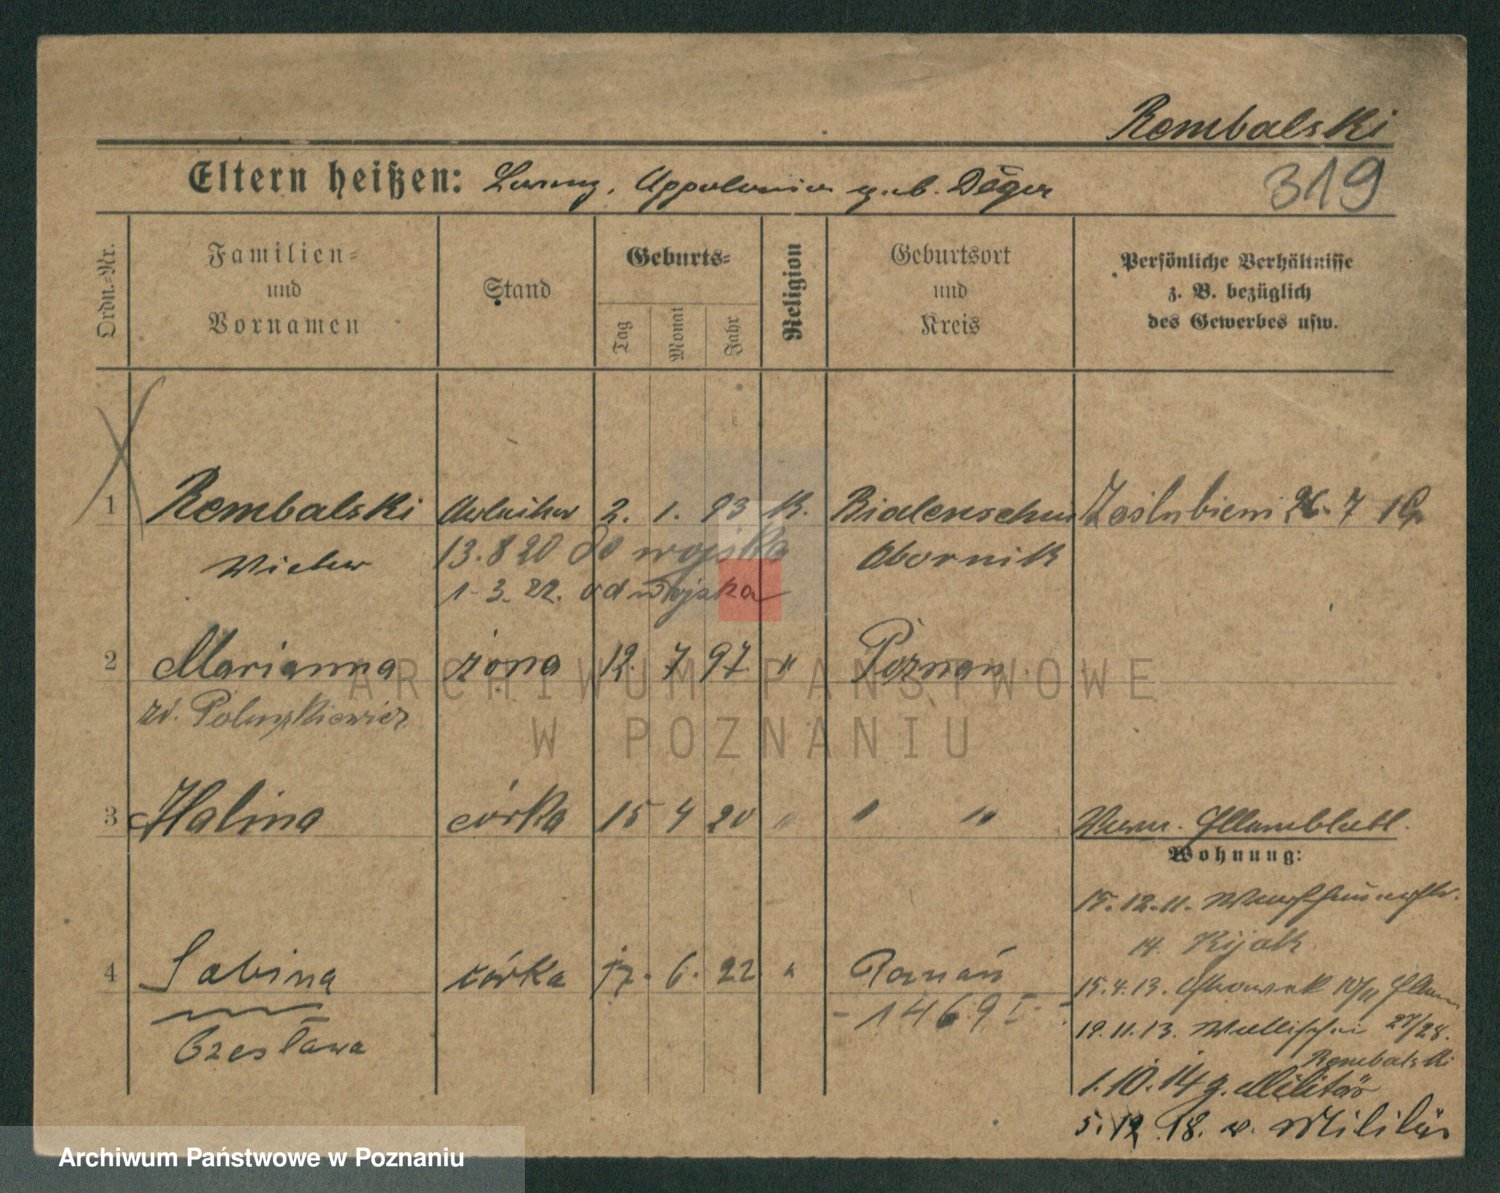 Rembalski
Eltern heißen: Lorenz, Appolonia geb. Déger
319
Ordn.-Nr.
Familien-
und
Vornamen
Stand
Geburts-
Tag
Monat
Jahr
Religion
Geburtsort
und
Kreis
Persönliche Verhältnisse
z. B. bezüglich
des Gewerbes usw.
1 Rembalski Arbeiter 2. 1. 93 K. Zaślubieni 26. 7 19
13.8 20 do wojska
Obornik
1-3. 22. od wojska
2 Marianna żona 12. 7 97 " Poznan
3 Halina córka 15 4 20 " " "
Wohnung:
15.12.11.
14.
4 Sabina córka 17. 6. 22 " Poznań
15.4.13.
- 1469 I -
19.11.13. Wallischei 27/28.
Czesława
Rembalski
1.10.14 z. Militär
5.12.18. v. Militär
ARCHIWUM PAŃSTWOWE
W POZNANIU
Archiwum Państwowe w Poznaniu